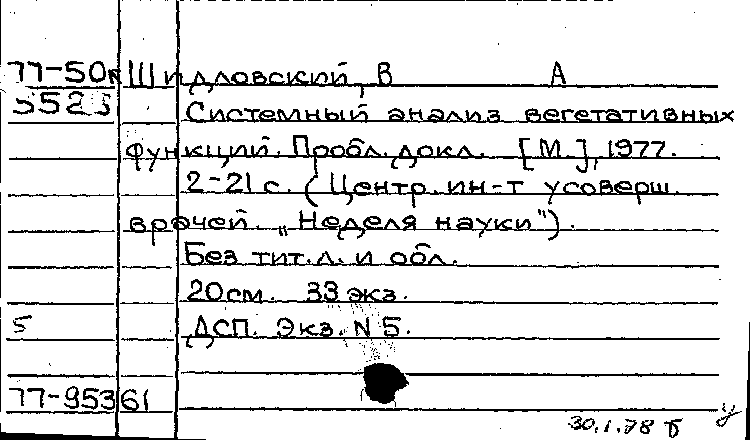 77-50 Шидловский, В А
5523 Системный анализ вегетативных
функций. Пробл. докл. [М.], 1977.
2-21 с. (Центр. ин-т усоверш.
врачей. „Неделя науки").
Без тит. л. и обл.
20 см. 33 экз.
5 ДСП. Экз. N 5.
77-95361
30.1.78